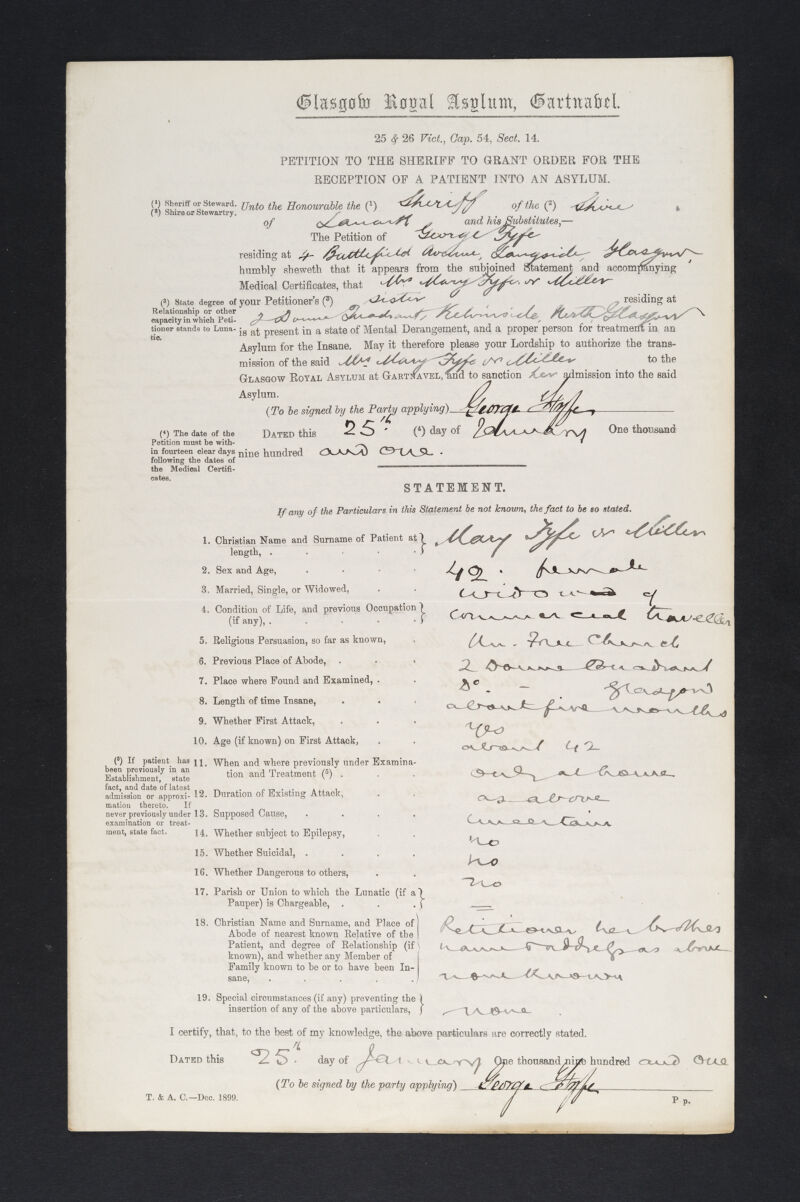 Glasgow Royal Asylum, Gartnabel.
25 & 26 Vict., Cap. 54, Sect. 14.
PETITION TO THE SHERIFF TO GRANT ORDER FOR THE
RECEPTION OF A PATIENT INTO AN ASYLUM.
(1) Sheriff or Steward.
(2) Shire or Stewartry.
Unto the Honourable the (1) Sheriff of the (2) Shire
of Lanark and his Substitutes,—
The Petition of George Fyfe
residing at 4 Battlefield Avenue, Langside, Glasgow,
humbly sheweth that it appears from the subjoined Statement and accompanying
Medical Certificates, that Mrs Mary Fyfe or Miller
(3) State degree of
Relationship or other
capacity in which Peti-
tioner stands to Luna-
tic.
your Petitioner's (3) sister residing at
2 Doune Quadrant, Kelvinside, North Glasgow
is at present in a state of Mental Derangement, and a proper person for treatment in an
Asylum for the Insane. May it therefore please your Lordship to authorize the trans-
mission of the said Mrs Mary Fyfe or Miller to the
GLASGOW ROYAL ASYLUM at GARTNAVEL, and to sanction her admission into the said
Asylum.
(To be signed by the Party applying) George Fyfe
(4) The date of the
Petition must be with-
in fourteen clear days
following the dates of
the Medical Certifi-
cates.
DATED this 25th (4) day of January One thousand
nine hundred and one.
STATEMENT.
If any of the Particulars in this Statement be not known, the fact to be so stated.
1. Christian Name and Surname of Patient at
length, . . . . . Mary Fyfe or Miller
2. Sex and Age, . . . . 42. female
3. Married, Single, or Widowed, . . widow of
4. Condition of Life, and previous Occupation
(if any), . . . . . . commercial traveller
5. Religious Persuasion, so far as known, . Un. Free Church
6. Previous Place of Abode, . . . 2 Doune Quadrant
7. Place where Found and Examined, . . Do. - Glasgow
8. Length of time Insane, . . . about five months
9. Whether First Attack, . . . Yes
10. Age (if known) on First Attack, . . about 42
(5) If patient has
been previously in an
Establishment, state
fact, and date of latest
admission or approxi-
mation thereto. If
never previously under
examination or treat-
ment, state fact.
11. When and where previously under Examina-
tion and Treatment (5) . . . only at home
12. Duration of Existing Attack, . . as above
13. Supposed Cause, . . . . uncertain
14. Whether subject to Epilepsy, . . no
15. Whether Suicidal, . . . . no
16. Whether Dangerous to others, . . no
17. Parish or Union to which the Lunatic (if a
Pauper) is Chargeable, . . . =
18. Christian Name and Surname, and Place of
Abode of nearest known Relative of the
Patient, and degree of Relationship (if
known), and whether any Member of
Family known to be or to have been In-
sane, . . . . . .
Petitioner her brother
name & address as above
none known
19. Special circumstances (if any) preventing the
insertion of any of the above particulars, none
I certify, that, to the best of my knowledge, the above particulars are correctly stated.
DATED this 25th day of January One thousand nine hundred and one
(To be signed by the party applying) George Fyfe
T. & A. C.—Dec. 1899.
P p.